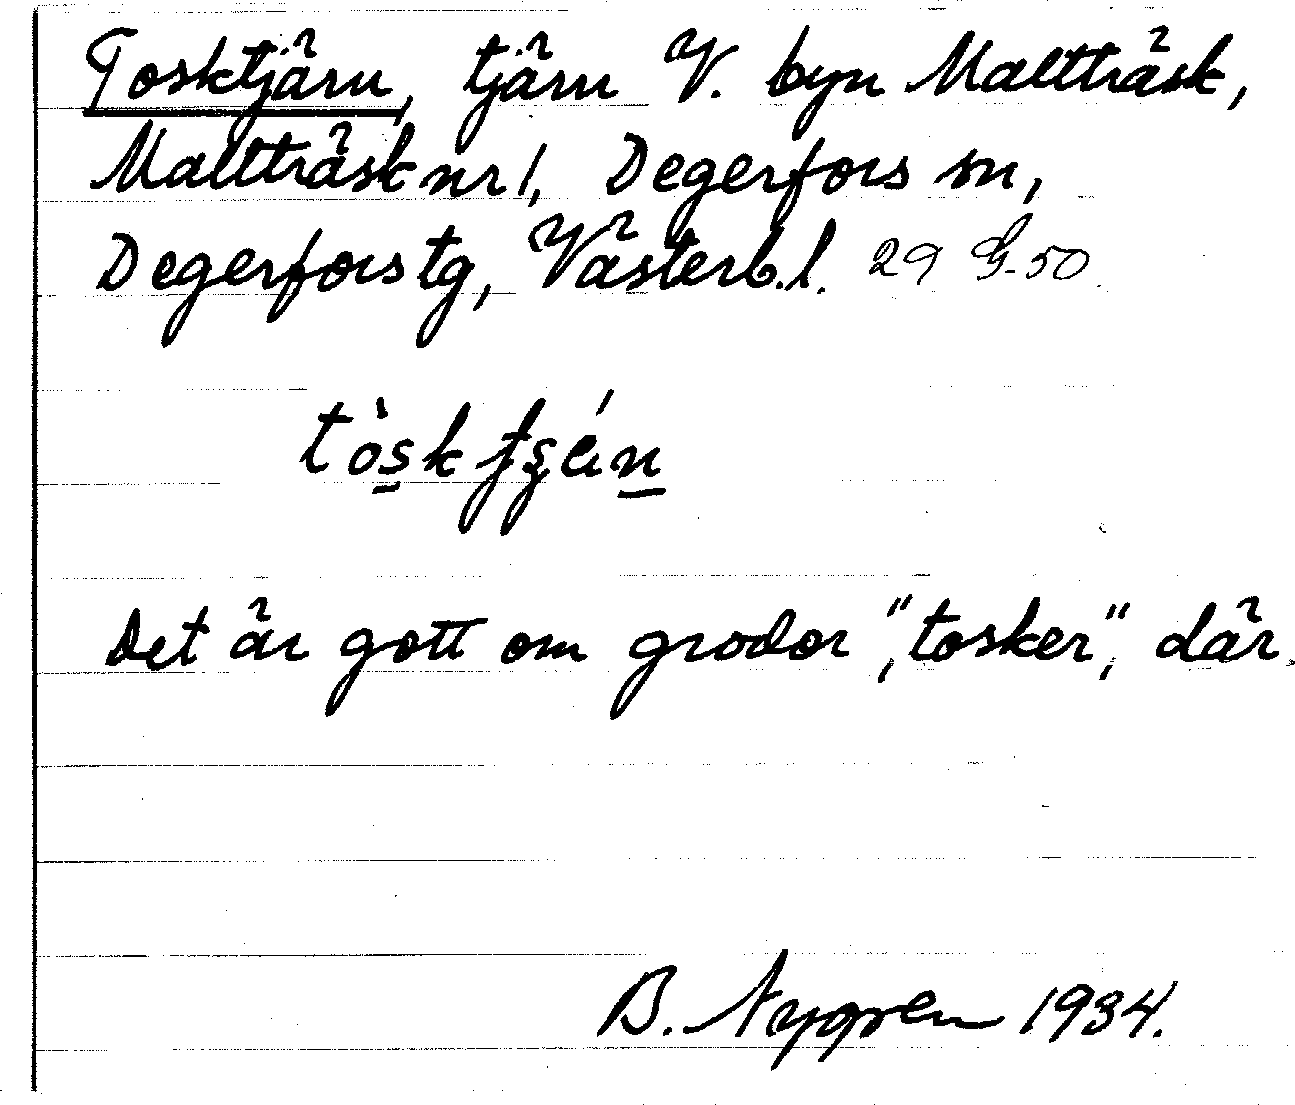 Tosktjärn, tjärn V. byn Maltträsk,
Maltträsk nr 1, Degerfors sn,
Degerfors tg, Västerb. l. 29 G-50
Det är gott om grodor, "tosker", där.
B. Nygren 1934.